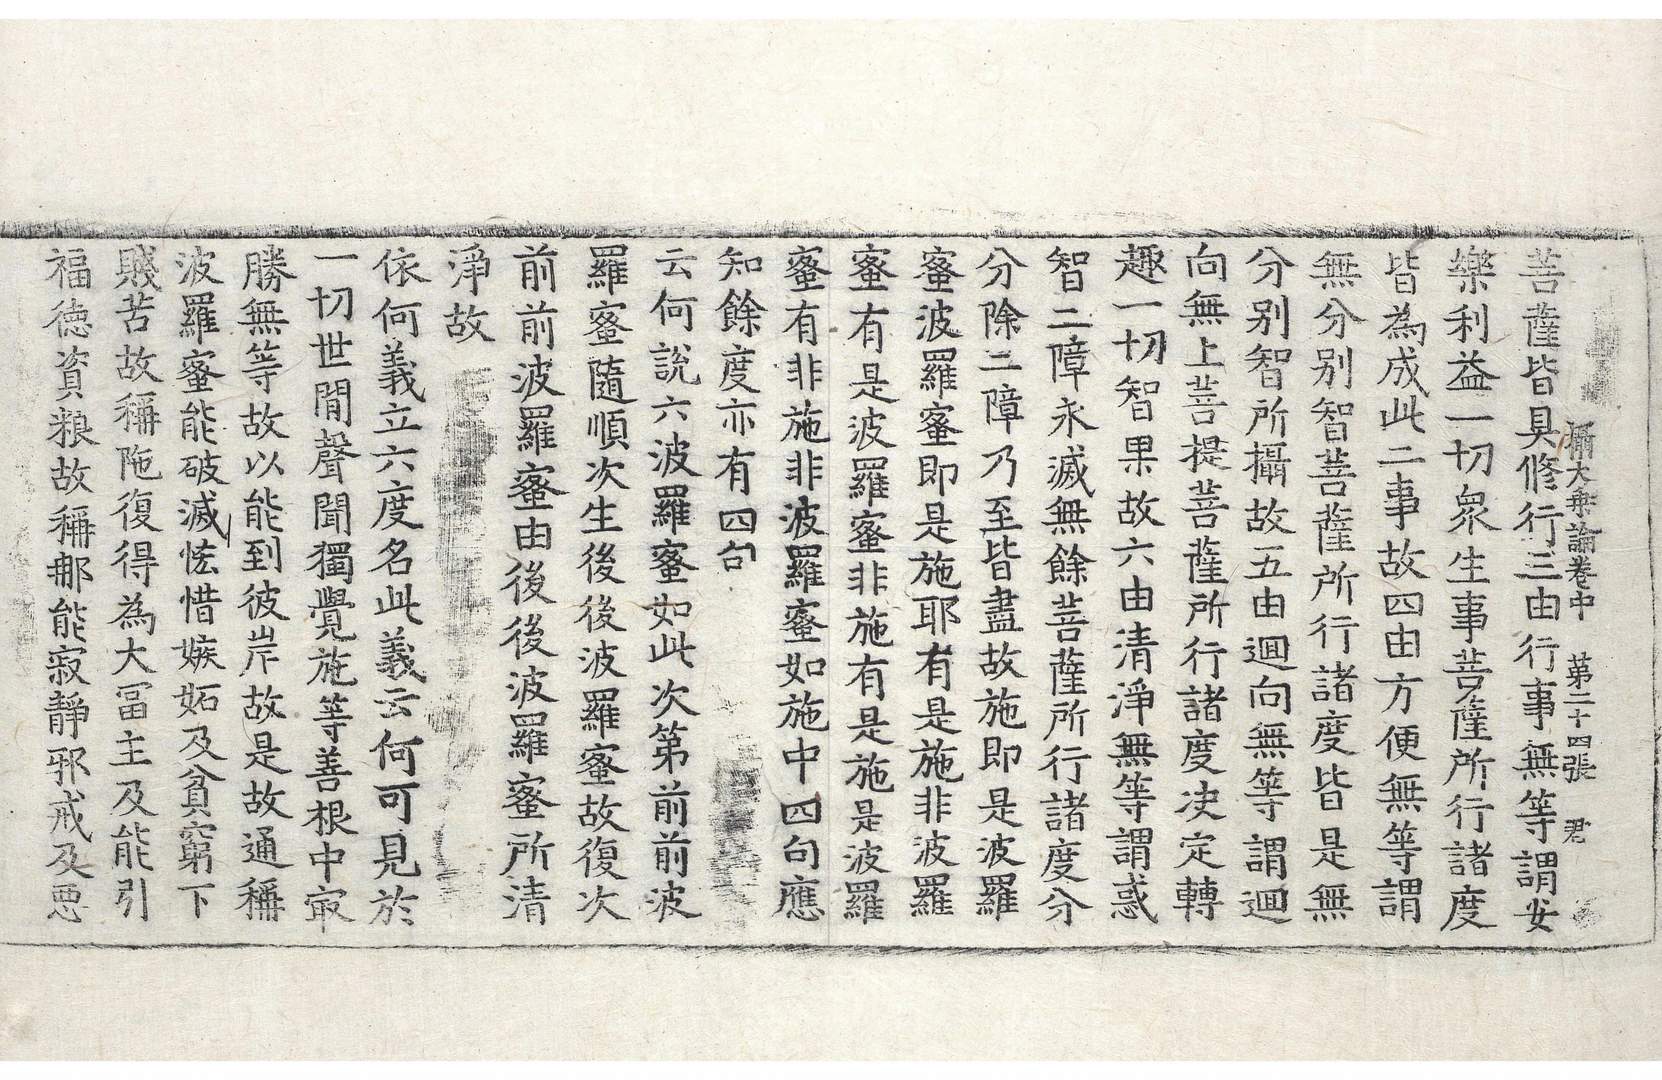 攝大乘論卷中 第二十四張 君
菩薩皆具修行三由行事無等謂安
樂利益一切衆生事菩薩所行諸度
皆為成此二事故四由方便無等謂
無分别智菩薩所行諸度皆是無
分别智所攝故五由迴向無等謂迴
向無上菩提菩薩所行諸度决定轉
趣一切智果故六由清淨無等謂惑
智二障永滅無餘菩薩所行諸度分
分除二障乃至皆盡故施即是波羅
蜜波羅蜜即是施耶有是施非波羅
蜜有是波羅蜜非施有是施是波羅
蜜有非施非波羅蜜如施中四句應
知餘度亦有四句
云何說六波羅蜜如此次第前前波
羅蜜隨順次生後後波羅蜜故復次
前前波羅蜜由後後波羅蜜所清
淨故
依何義立六度名此義云何可見於
一切世間聲聞獨覺施等善根中㝡
勝無等故以能到彼岸故是故通稱
波羅蜜能破滅恡惜嫉妬及貧窮下
賤苦故稱陁復得為大冨主及能引
福德資粮故稱那能寂靜邪戒及惡